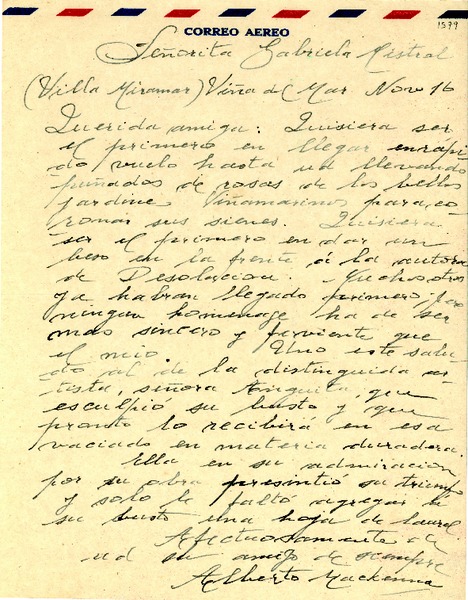 1579
CORREO AEREO
Señorita Gabriela Mistral
(Villa Miramar) Viña del Mar Nov 16
Querida amiga: Quisiera ser
el primero en llegar en rapi-
do vuelo hasta ud llevando
puñados de rosas de los bellos
jardines Viñamarinos para co-
ronar sus sienes. Quisiera
ser el primero en dar un
beso en la frente á la autora
de Desolacion. Muchos otros
ya habran llegado primero, pero
ningun homenage ha de ser
mas sincero y ferviente que
el mio. Uno este salu-
do al de la distinguida ar-
tista, señora Anguita, que
esculpió su busto y que
pronto lo recibirá en esa
vaciado en materia duradera.
Ella en su admiracion
por su obra presintio su triunfo
y solo le faltó agregar a
su busto una hoja de laurel
Afectuosamente de
ud su amigo de siempre
Alberto Mackenna